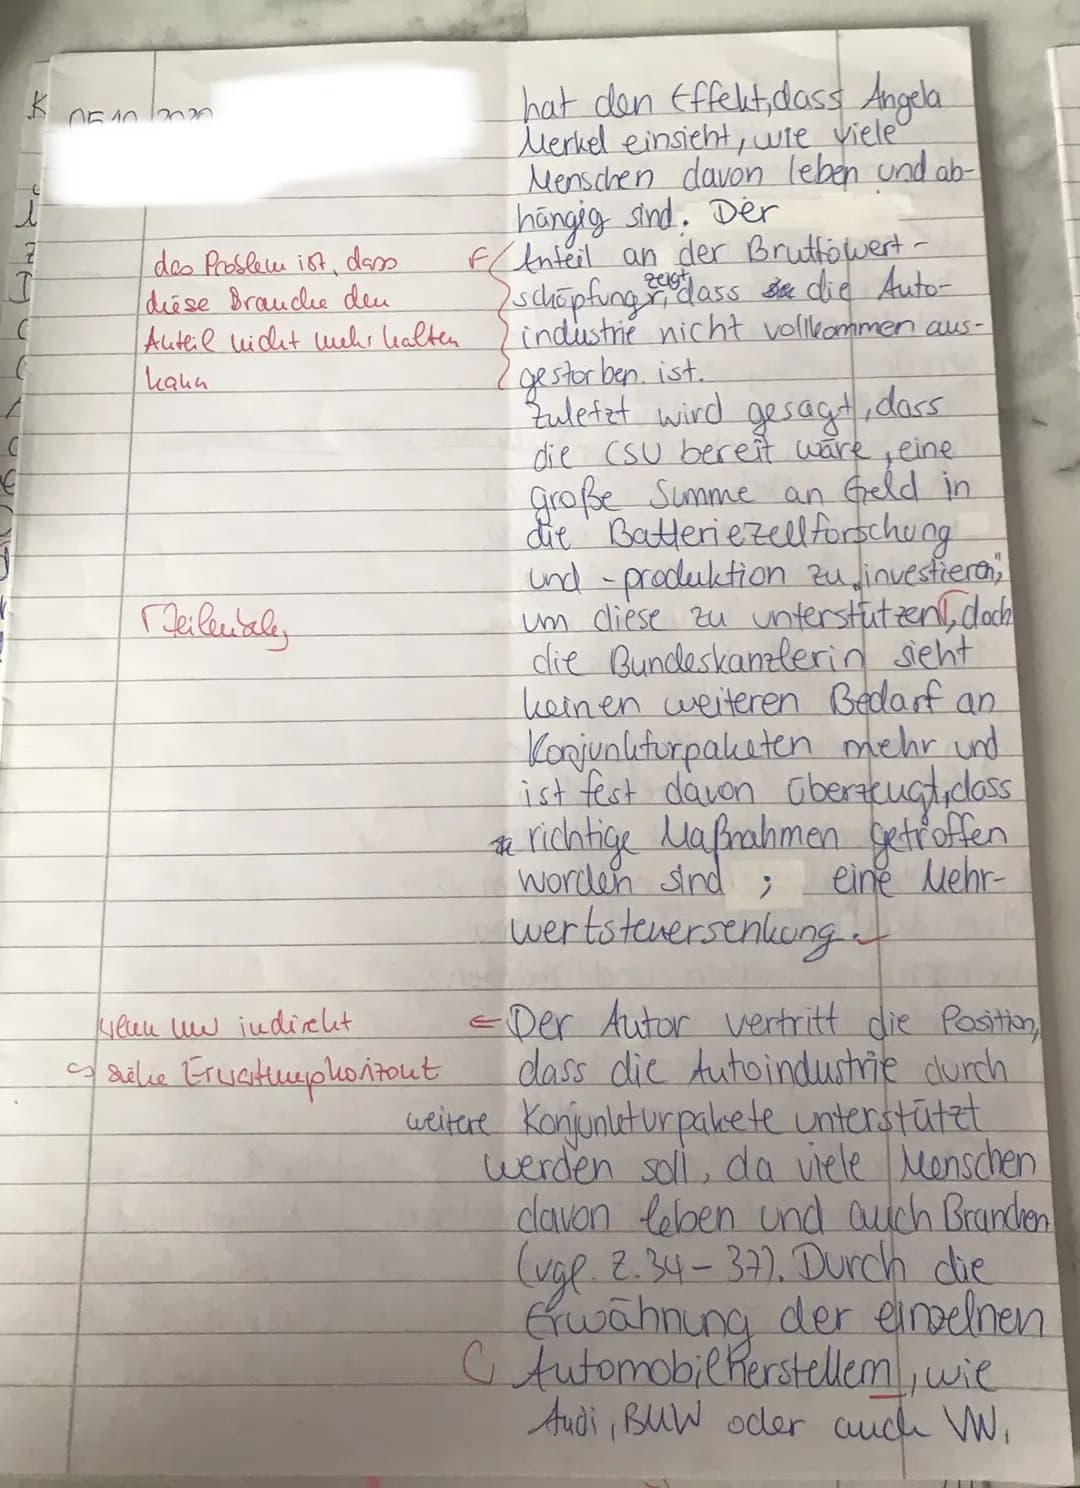 05.10.2020
hat den Effekt, dass Angela
Merkel einsieht, wie viele
Menschen davon leben und ab-
hängig sind. Der
das Problem ist, dass
diese Branche den
Anteil nicht mehr halten
kann
F Anteil an der Bruttowert-
schöpfung zeigt, dass die Auto-
industrie nicht vollkommen aus-
gestorben ist.
Zuletzt wird gesagt, dass
die CSU bereit wäre, eine
große Summe an Geld in
die Batteriezellforschung
und -produktion zu "investieren",
Zeilenbeleg
um diese zu unterstützen, doch
die Bundeskanzlerin sieht
keinen weiteren Bedarf an
Konjunkturpaketen mehr und
ist fest davon überzeugt, dass
richtige Maßnahmen getroffen
worden sind ; eine Mehr-
wertsteuersenkung.
wenn nur indirekt
↪ siehe Erwartungshorizont
Der Autor vertritt die Position,
dass die Autoindustrie durch
weitere Konjunkturpakete unterstützt
werden soll, da viele Menschen
davon leben und auch Branchen
(vgl. Z. 34-37). Durch die
Erwähnung der einzelnen
Automobilherstellern, wie
Audi, BMW oder auch VW,